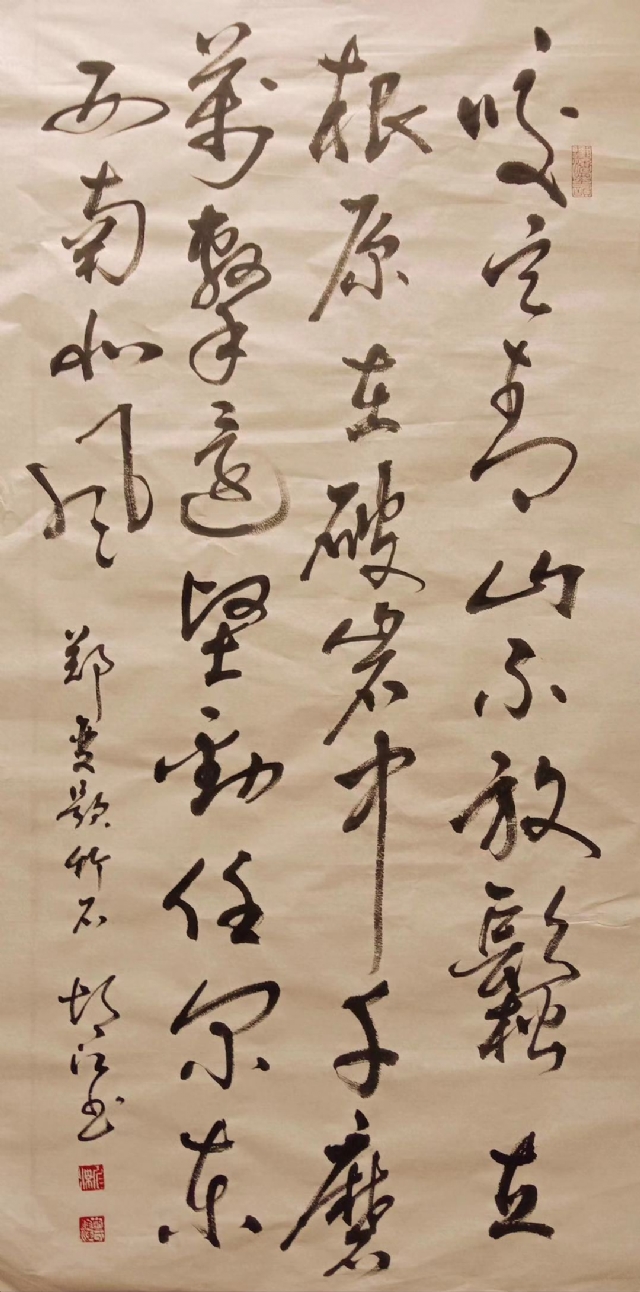 咬定青山不放鬆立
根原在破岩中千磨
萬擊還堅勁任尔東
西南北风
郑燮题竹石
江书